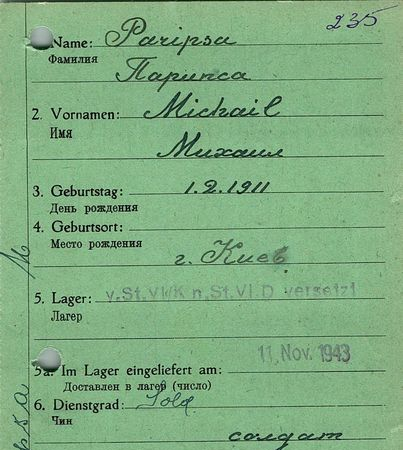 235
Name: Paripsa
Фамилия
Парипса
2. Vornamen: Michail
Имя
Михаил
3. Geburtstag: 1.2.1911
День рождения
4. Geburtsort:
Место рождения
г. Киев
5. Lager: v. St. VI/K n. St. VI D versetzt
Лагер
11. Nov. 1943
5a. Im Lager eingeliefert am:
Доставлен в лагер (число)
6. Dienstgrad: Sold
Чин
солдат